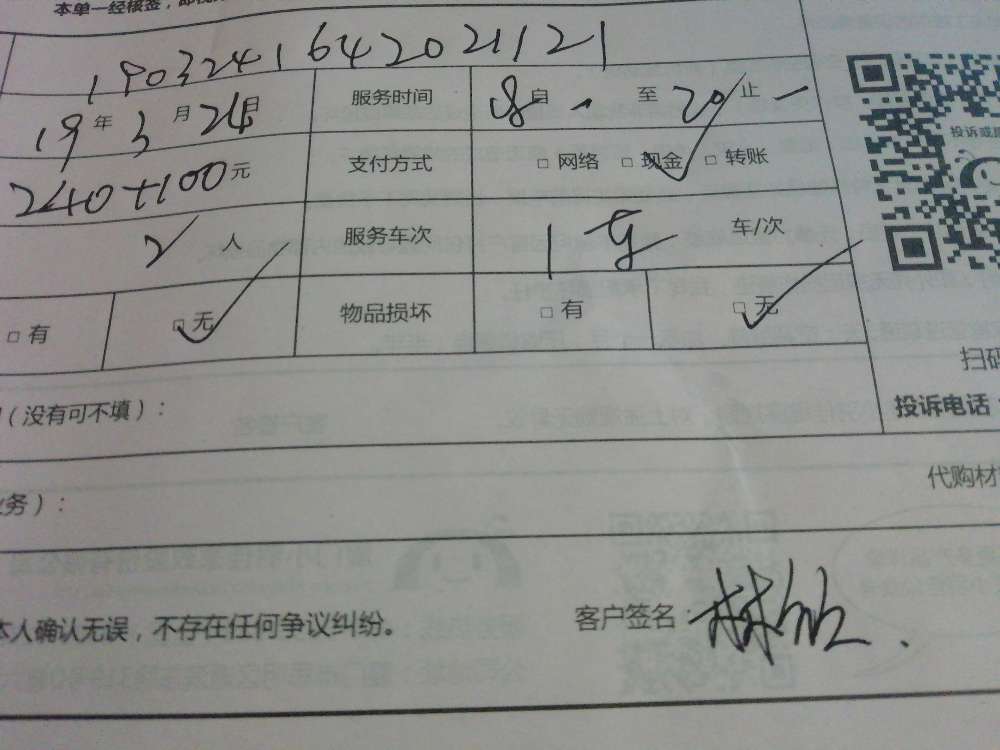 本单一经核签，即视
1903241642021121
19 年 3 月 24 日 服务时间 8 自 至 20 止
投诉或
240+100 元 支付方式 □ 网络 □ 现金 □ 转账
2 人 服务车次 1 车/次
□ 有 □ 无 物品损坏 □ 有 □ 无
扫码
（没有可不填）：
投诉电话：
业务）：
代购材
本人确认无误，不存在任何争议纠纷。 客户签名：